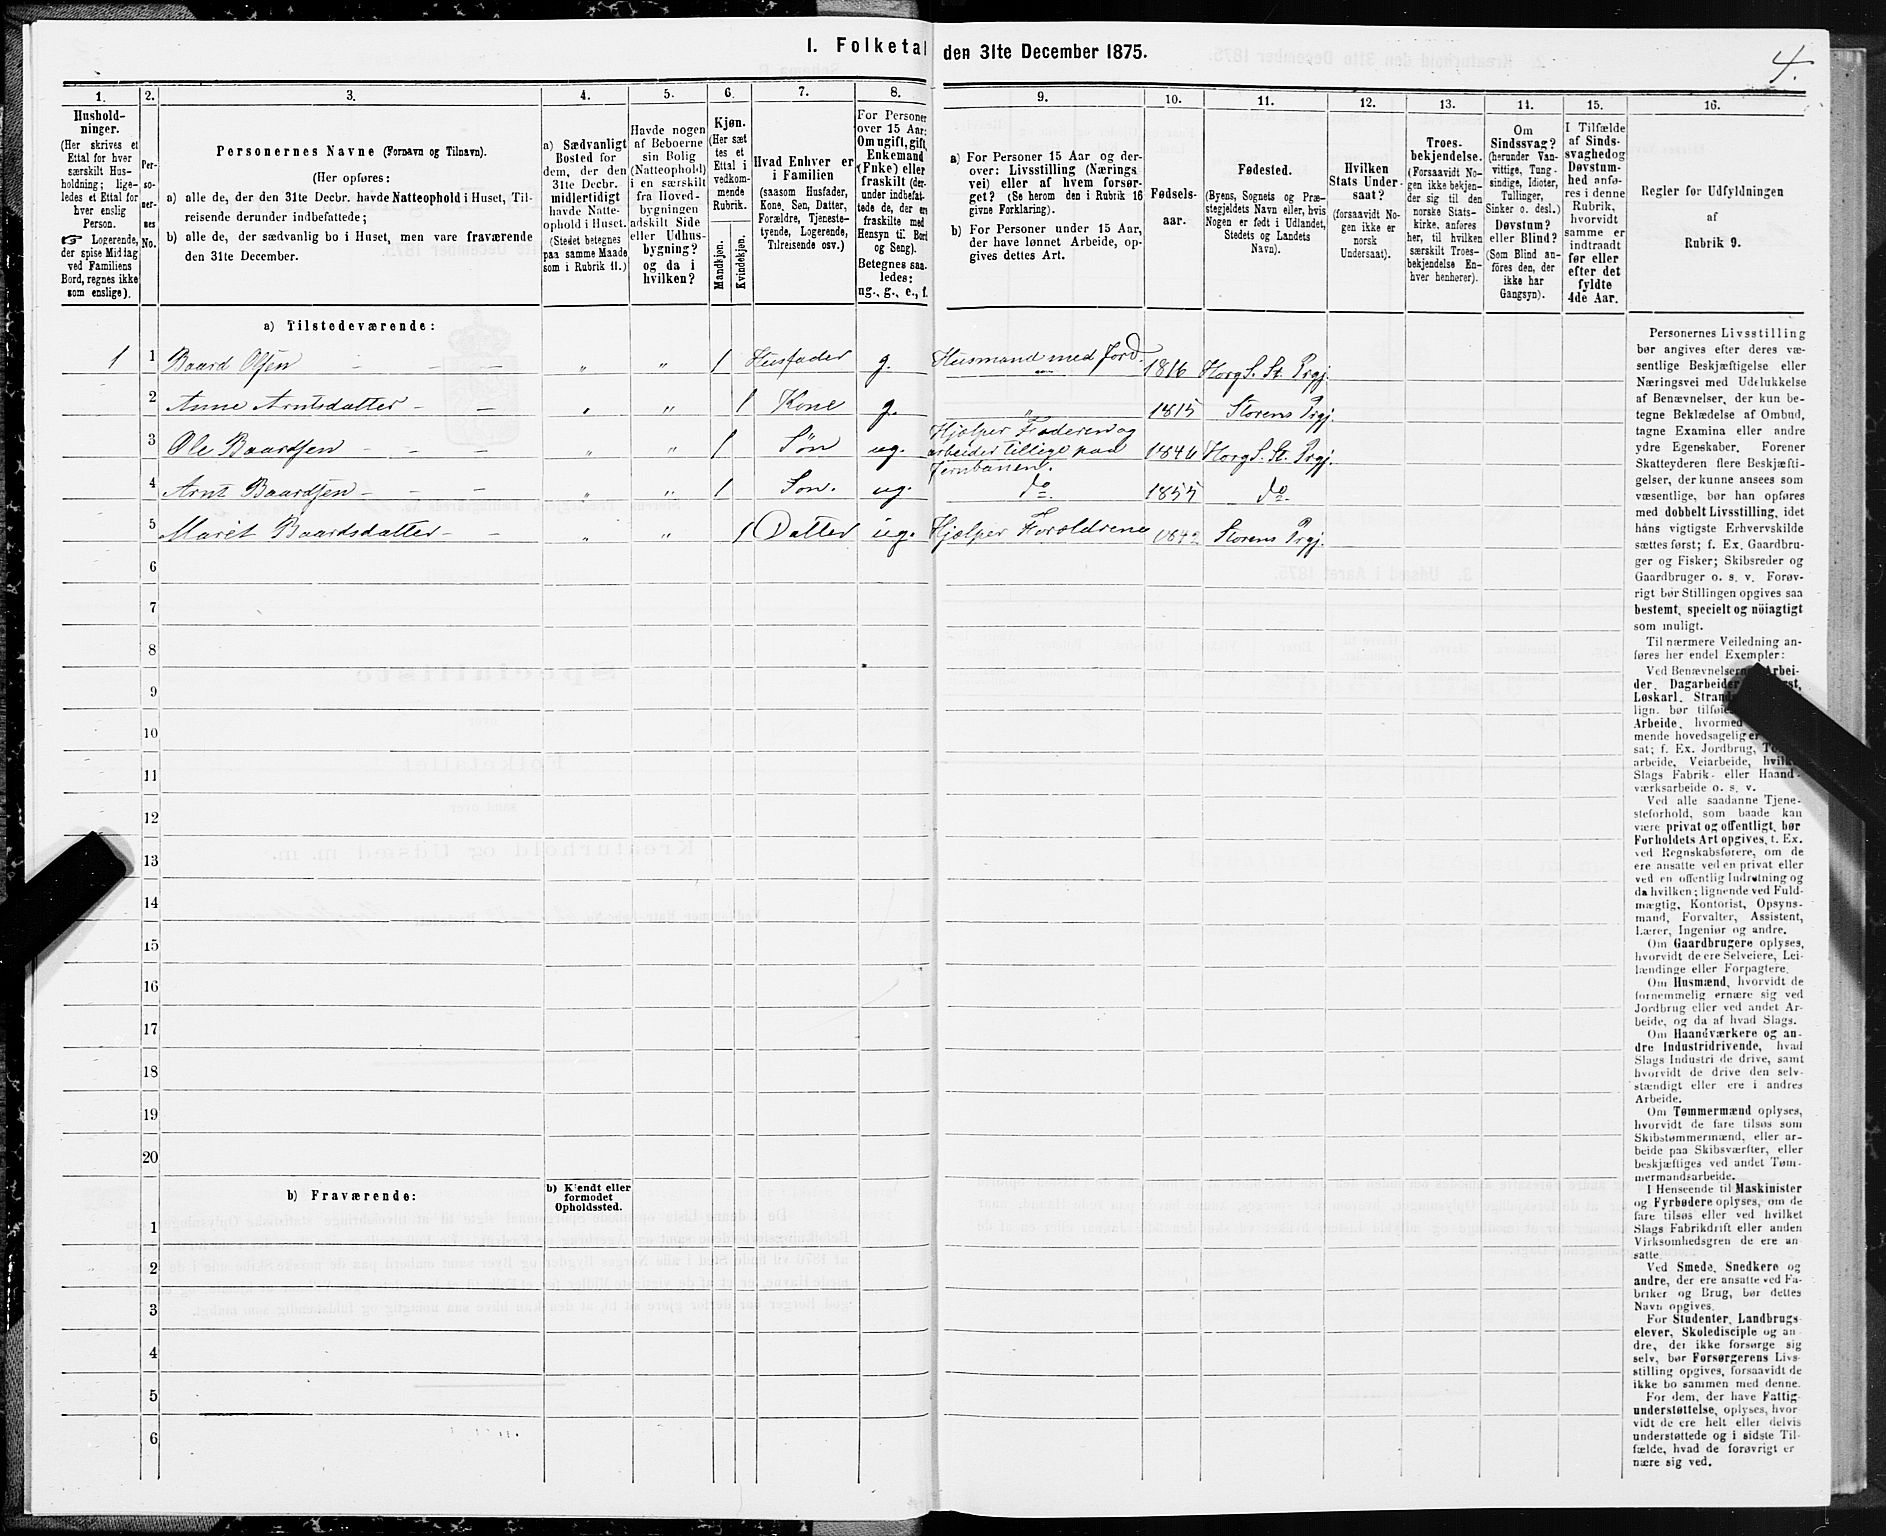 I. Folketal den 31te December 1875.
4.
1.
Hushold-
ninger.
(Her skrives et
Ettal for hver
særskilt Hus-
holdning; lige-
ledes et Ettal for
hver enslig
Person.
☞ Logerende,
der spise Middag
ved Familiens
Bord, regnes ikke
som enslige).
2.
Per-
so-
ner-
nes
No.
3.
Personernes Navne (Fornavn og Tilnavn).
(Her opføres:
a) alle de, der den 31te Decbr. havde Natteophold i Huset, Til-
reisende derunder indbefattede;
b) alle de, der sædvanlig bo i Huset, men vare fraværende
den 31te December.
4.
a) Sædvanligt
Bosted for
dem, der den
31te Decbr.
midlertidigt
havde Natte-
ophold i Huset.
(Stedet betegnes
paa samme Maade
som i Rubrik 11.)
5.
Havde nogen
af Beboerne
sin Bolig
(Natteophold)
i en særskilt
fra Hoved-
bygningen
adskilt Side
eller Udhus-
bygning?
og da i
hvilken?
6.
Kjøn.
(Her sæt
tes et
Ettal i
vedkom-
mende
Rubrik.
Mandkjøn.
Kvindekjøn.
7.
Hvad Enhver er
i Familien
(saasom Husfader,
Kone, Søn, Datter,
Forældre, Tjeneste-
tyende, Logerende,
Tilreisende osv.)
8.
For Personer
over 15 Aar:
Om ugift, gift,
Enkemand
(Enke) eller
fraskilt (der-
under indbefat-
tede de, der ere
fraskilte med
Hensyn til Bord
og Seng).
Betegnes saa-
ledes:
ug., g., e., f.
9.
a) For Personer 15 Aar og der-
over: Livsstilling (Nærings
vei) eller af hvem forsør-
get? (Se herom den i Rubrik 16
givne Forklaring).
b) For Personer under 15 Aar,
der have lønnet Arbeide, op-
gives dettes Art.
10.
Fødsels-
aar.
11.
Fødested.
(Byens, Sognets og Præ-
stegjeldets Navn eller, hvis
Nogen er født i Udlandet,
Stedets og Landets
Navn).
12.
Hvilken
Stats Under-
saat?
(forsaavidt No-
gen ikke er
norsk
Undersaat).
13.
Troes-
bekjendelse.
(Forsaavidt No-
gen ikke bekjen-
der sig til den
norske Stats-
kirke, anføres
her, til hvilken
særskilt Troes-
bekjendelse En-
hver henhører).
14.
Om
Sindssvag?
(herunder Van-
vittige, Tung-
sindige, Idioter,
Tullinger,
Sinker o. desl.)
Døvstum?
eller Blind?
(Som Blind an-
føres den, der
ikke har
Gangsyn).
15.
I Tilfælde
af Sinds-
svaghed og
Døvstum-
hed anfø-
res i denne
Rubrik,
hvorvidt
samme er
indtraadt
før eller
efter det
fyldte
4de Aar.
16.
Regler for Udfyldningen
af
Rubrik 9.
a) Tilstedeværende:
1 1 Baard Olsen - - - „ „ 1 Husfader g. Husmand med Jord. 1816 Horg S. St. Prgj.
2 Anne Arntsdatter - - „ „ 1 Kone g. „ 1815 Storens Prgj.
3 Ole Baardsen - - - „ „ 1 Søn ug. Hjælper Faderen og
arbeider tillige paa
Jernbanen. 1846 Horg S. St. Prgj.
4 Arnt Baardsen - - - „ „ 1 Søn. ug. do. 1855 do.
5 Marit Baardsdatter - - „ „ 1 Datter ug. Hjælper Forældrene 1842 Storens Prgj.
6
7
8
9
10
11
12
13
14
15
16
17
18
19
20
b) Fraværende:
b) Kjendt eller
formodet
Opholdssted.
1
2
3
4
5
6
Personernes Livsstilling
bør angives efter deres væ-
sentlige Beskjæftigelse eller
Næringsvei med Udelukkelse
af Benævnelser, der kun be-
tegne Beklædelse af Ombud,
tagne Examina eller andre
ydre Egenskaber. Forener
Skatteyderen flere Beskjæfti-
gelser, der kunne ansees som
væsentlige, bør han opføres
med dobbelt Livsstilling, idet
hans vigtigste Erhvervskilde
sættes først; f. Ex. Gaardbru-
ger og Fisker; Skibsreder og
Gaardbruger o. s. v. Forøv-
rigt bør Stillingen opgives saa
bestemt, specielt og nöiagtigt
som muligt.
Til nærmere Veiledning an-
føres her endel Exempler:
Ved Benævnelserne Arbei-
der, Dagarbeider
Løskarl, Strand
lign. bør tilføies
Arbeide, hvormed
mende hovedsagelig er
sat; f. Ex. Jordbrug,
arbeide, Veiarbeide, hvilket
Slags Fabrik- eller Haand-
værksarbeide o. s. v.
Ved alle saadanne Tjene-
steforhold, som baade kan
være privat og offentligt, bør
Forholdets Art opgives, t. Ex.
ved Regnskabsførere, om de
ere ansatte ved en privat eller
ved en offentlig Indretning og
da hvilken; lignende ved Fuld-
mægtig, Kontorist, Opsyns-
mand, Forvalter, Assistent,
Lærer, Ingeniør og andre.
Om Gaardbrugere oplyses,
hvorvidt de ere Selveiere, Lei-
lændinge eller Forpagtere.
Om Husmænd, hvorvidt de
fornemmelig ernære sig ved
Jordbrug eller ved andet Ar-
beide, og da af hvad Slags.
Om Haandværkere og an-
dre Industridrivende, hvad
Slags Industri de drive, samt
hvorvidt de drive den selv-
stændigt eller ere i andres
Arbeide.
Om Tømmermænd oplyses,
hvorvidt de fare tilsøs som
Skibstømmermænd, eller ar-
beide paa Skibsværfter, eller
beskjæftiges ved andet Tøm-
mermandsarbeide.
I Henseende til Maskinister
og Fyrbødere oplyses, om de
fare tilsøs eller ved hvilket
Slags Fabrikdrift eller anden
Virksomhedsgren de ere an-
satte.
Ved Smede, Snedkere og
andre, der ere ansatte ved Fa-
briker og Brug, bør dettes
Navn opgives.
For Studenter, Landbrugs-
elever, Skoledisciple og an-
dre, der ikke forsørge sig
selv, bør Forsørgerens Livs-
stilling opgives, forsaavidt de
ikke bo sammen med denne.
For dem, der have Fattig-
understøttelse, oplyses, hvor
vidt de ere helt eller delvis
understøttede og i sidste Til-
fælde, hvad de forøvrigt er
nære sig ved.